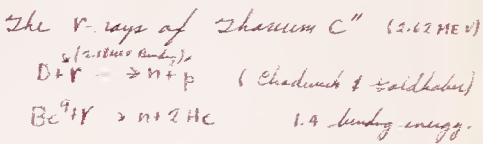 The γ-rays of Thorium C" (2.62 MEV)
(2.18 MEV Binding)
D+γ → n+p (Chadwick & Goldhaber)
Be⁹+γ → n+2He 1.4 binding energy.